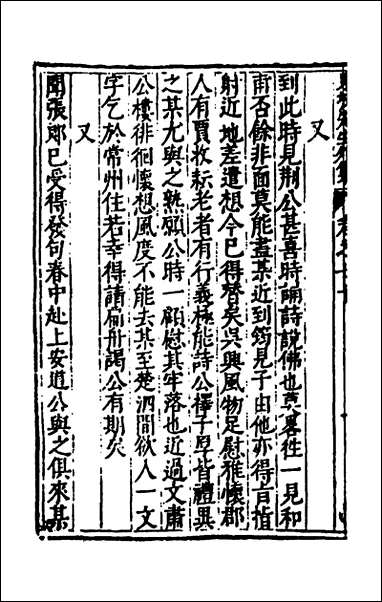 又
到此時見荊公甚喜時誦詩說佛也莫畧徃一見和
甫否餘非面莫能盡某近到筠見子由他亦得旨指
射近地差遣想今已得替矣吳興風物足慰雅懷郡
人有賈收耘老者有行義極能詩公擇子厚皆禮異
之某尤與之熟願公時一顧慰其牢落也近過文肅
公樓徘徊懷想風度不能去某至楚泗間欲入一文
字乞於常州住若幸得請扁舟謁公有期矣
又
聞張郎已受得發勾春中赴上安道公與之俱來某